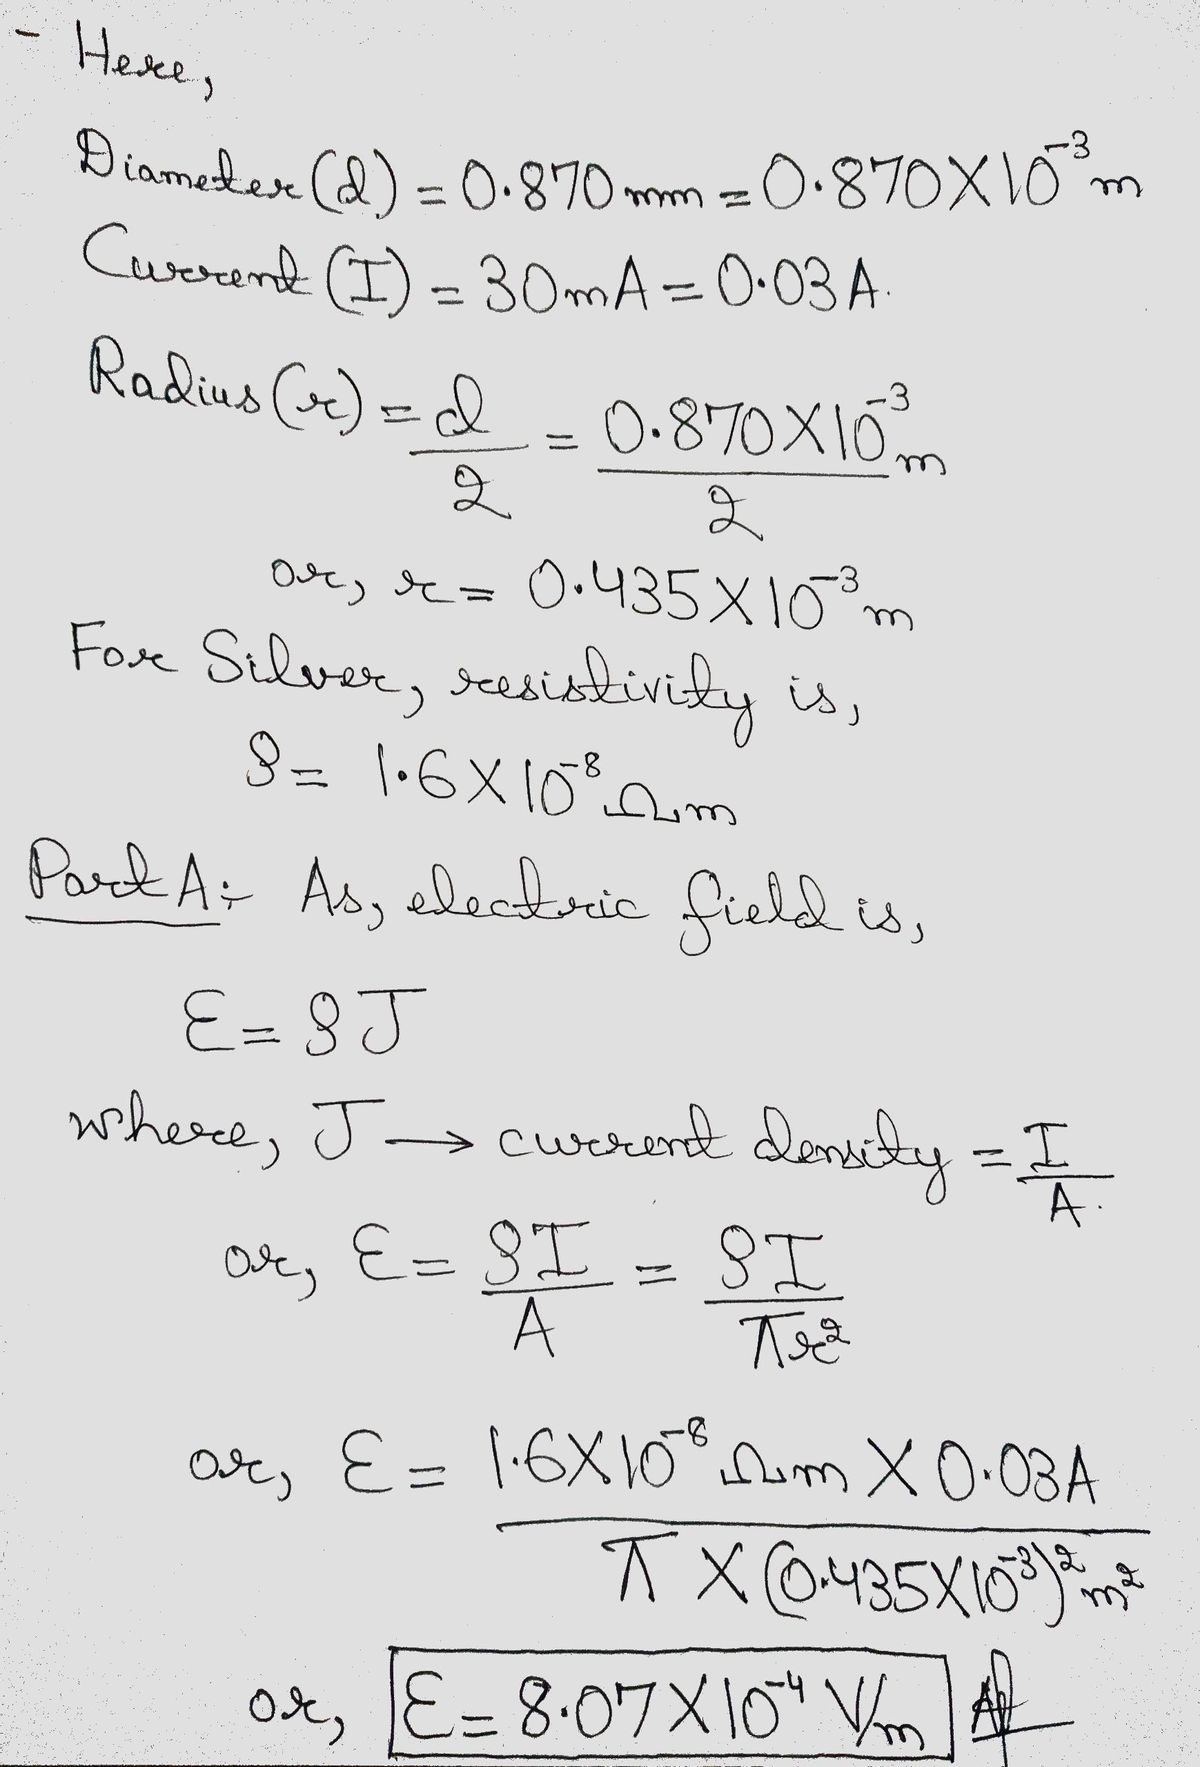 - Here,
Diameter (d) = 0.870 mm = 0.870 X 10⁻³ m
Current (I) = 30 mA = 0.03 A.
Radius (r) = d/2 = 0.870 X 10⁻³ m/2
or, r = 0.435 X 10⁻³ m
For Silver, resistivity is,
ρ = 1.6 X 10⁻⁸ Ωm
Part A:- As, electric field is,
Ɛ = ρJ
where, J → current density = I/A.
or, Ɛ = ρI/A = ρI/πr²
or, Ɛ = 1.6 X 10⁻⁸ Ωm X 0.03 A/π X (0.435 X 10⁻³)² m²
or, Ɛ = 8.07 X 10⁻⁴ V/m